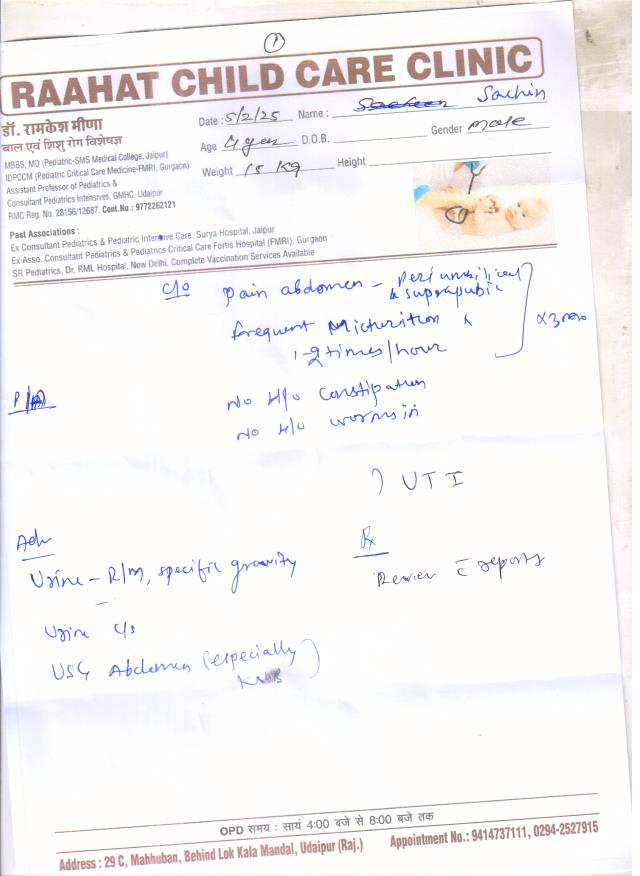 1
RAAHAT CHILD CARE CLINIC
डॉ. रामकेश मीणा
बाल एवं शिशु रोग विशेषज्ञ
MBBS, MD (Pediatric-SMS Medical College, Jaipur)
IDPCCM (Pediatric Critical Care Medicine-FMRI, Gurgaon)
Assistant Professor of Pediatrics &
Consultant Pediatrics Intensives, GMHC, Udaipur
RMC Reg. No. 28156/12687, Cont.No.: 9772262121
Date : 5/2/25 Name : Sachin
Age 4 year D.O.B. Gender male
Weight 15 Kg Height
Past Associations :
Ex Consultant Pediatrics & Pediatric Intensive Care, Surya Hospital, Jaipur
Ex Asso. Consultant Pediatrics & Pediatric Critical Care Fortis Hospital (FMRI), Gurgaon
SR Pediatrics, Dr. RML Hospital, New Delhi, Complete Vaccination Services Available
C/o Pain abdomen - Periumbilical
& suprapubic
frequent Micturition
1-2 times/hour
P/A
No H/o Constipation
No H/o worms in
) UTI
Adv
Rx
Urine - R/m, specific gravity
Review c̄ reports
Urine C/s
USG Abdomen (especially
KUB)
OPD समय : सायं 4:00 बजे से 8:00 बजे तक
Address : 29 C, Mahhuban, Behind Lok Kala Mandal, Udaipur (Raj.) Appointment No.: 9414737111, 0294-2527915